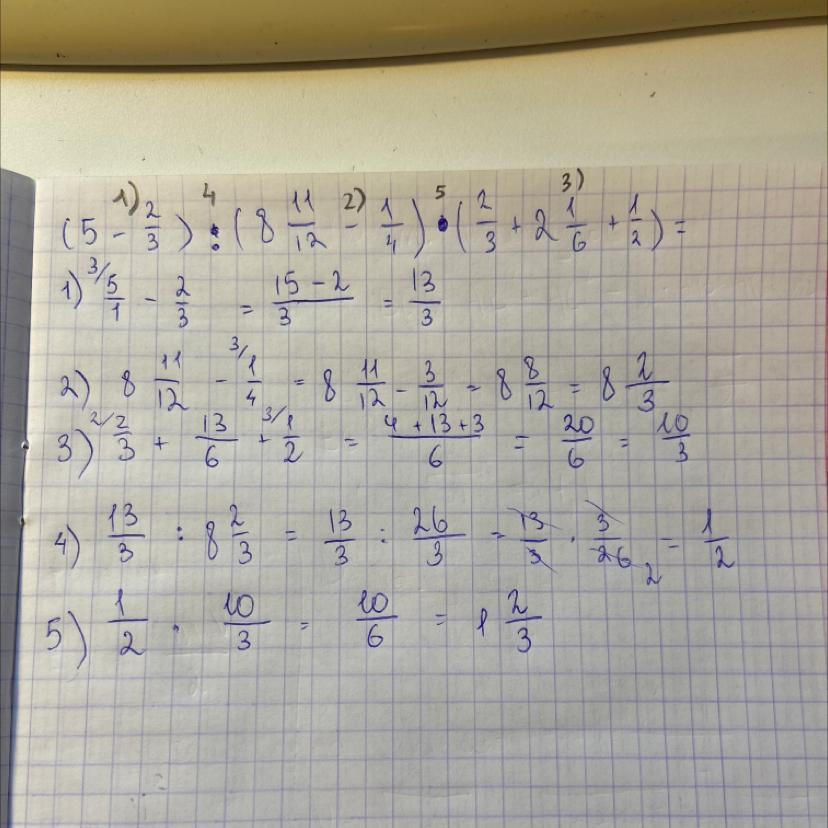 1) 4 2) 5 3)
(5 - 2/3) : (8 11/12 - 1/4) · (2/3 + 2 1/6 + 1/2) =
1) 3/ 5/1 - 2/3 = (15 - 2)/3 = 13/3
2) 8 11/12 - 3/ 1/4 = 8 11/12 - 3/12 = 8 8/12 = 8 2/3
3) 2/ 2/3 + 13/6 + 3/ 1/2 = (4 + 13 + 3)/6 = 20/6 = 10/3
4) 13/3 : 8 2/3 = 13/3 : 26/3 = 13/3 · 3/26 2 = 1/2
5) 1/2 · 10/3 = 10/6 = 1 2/3